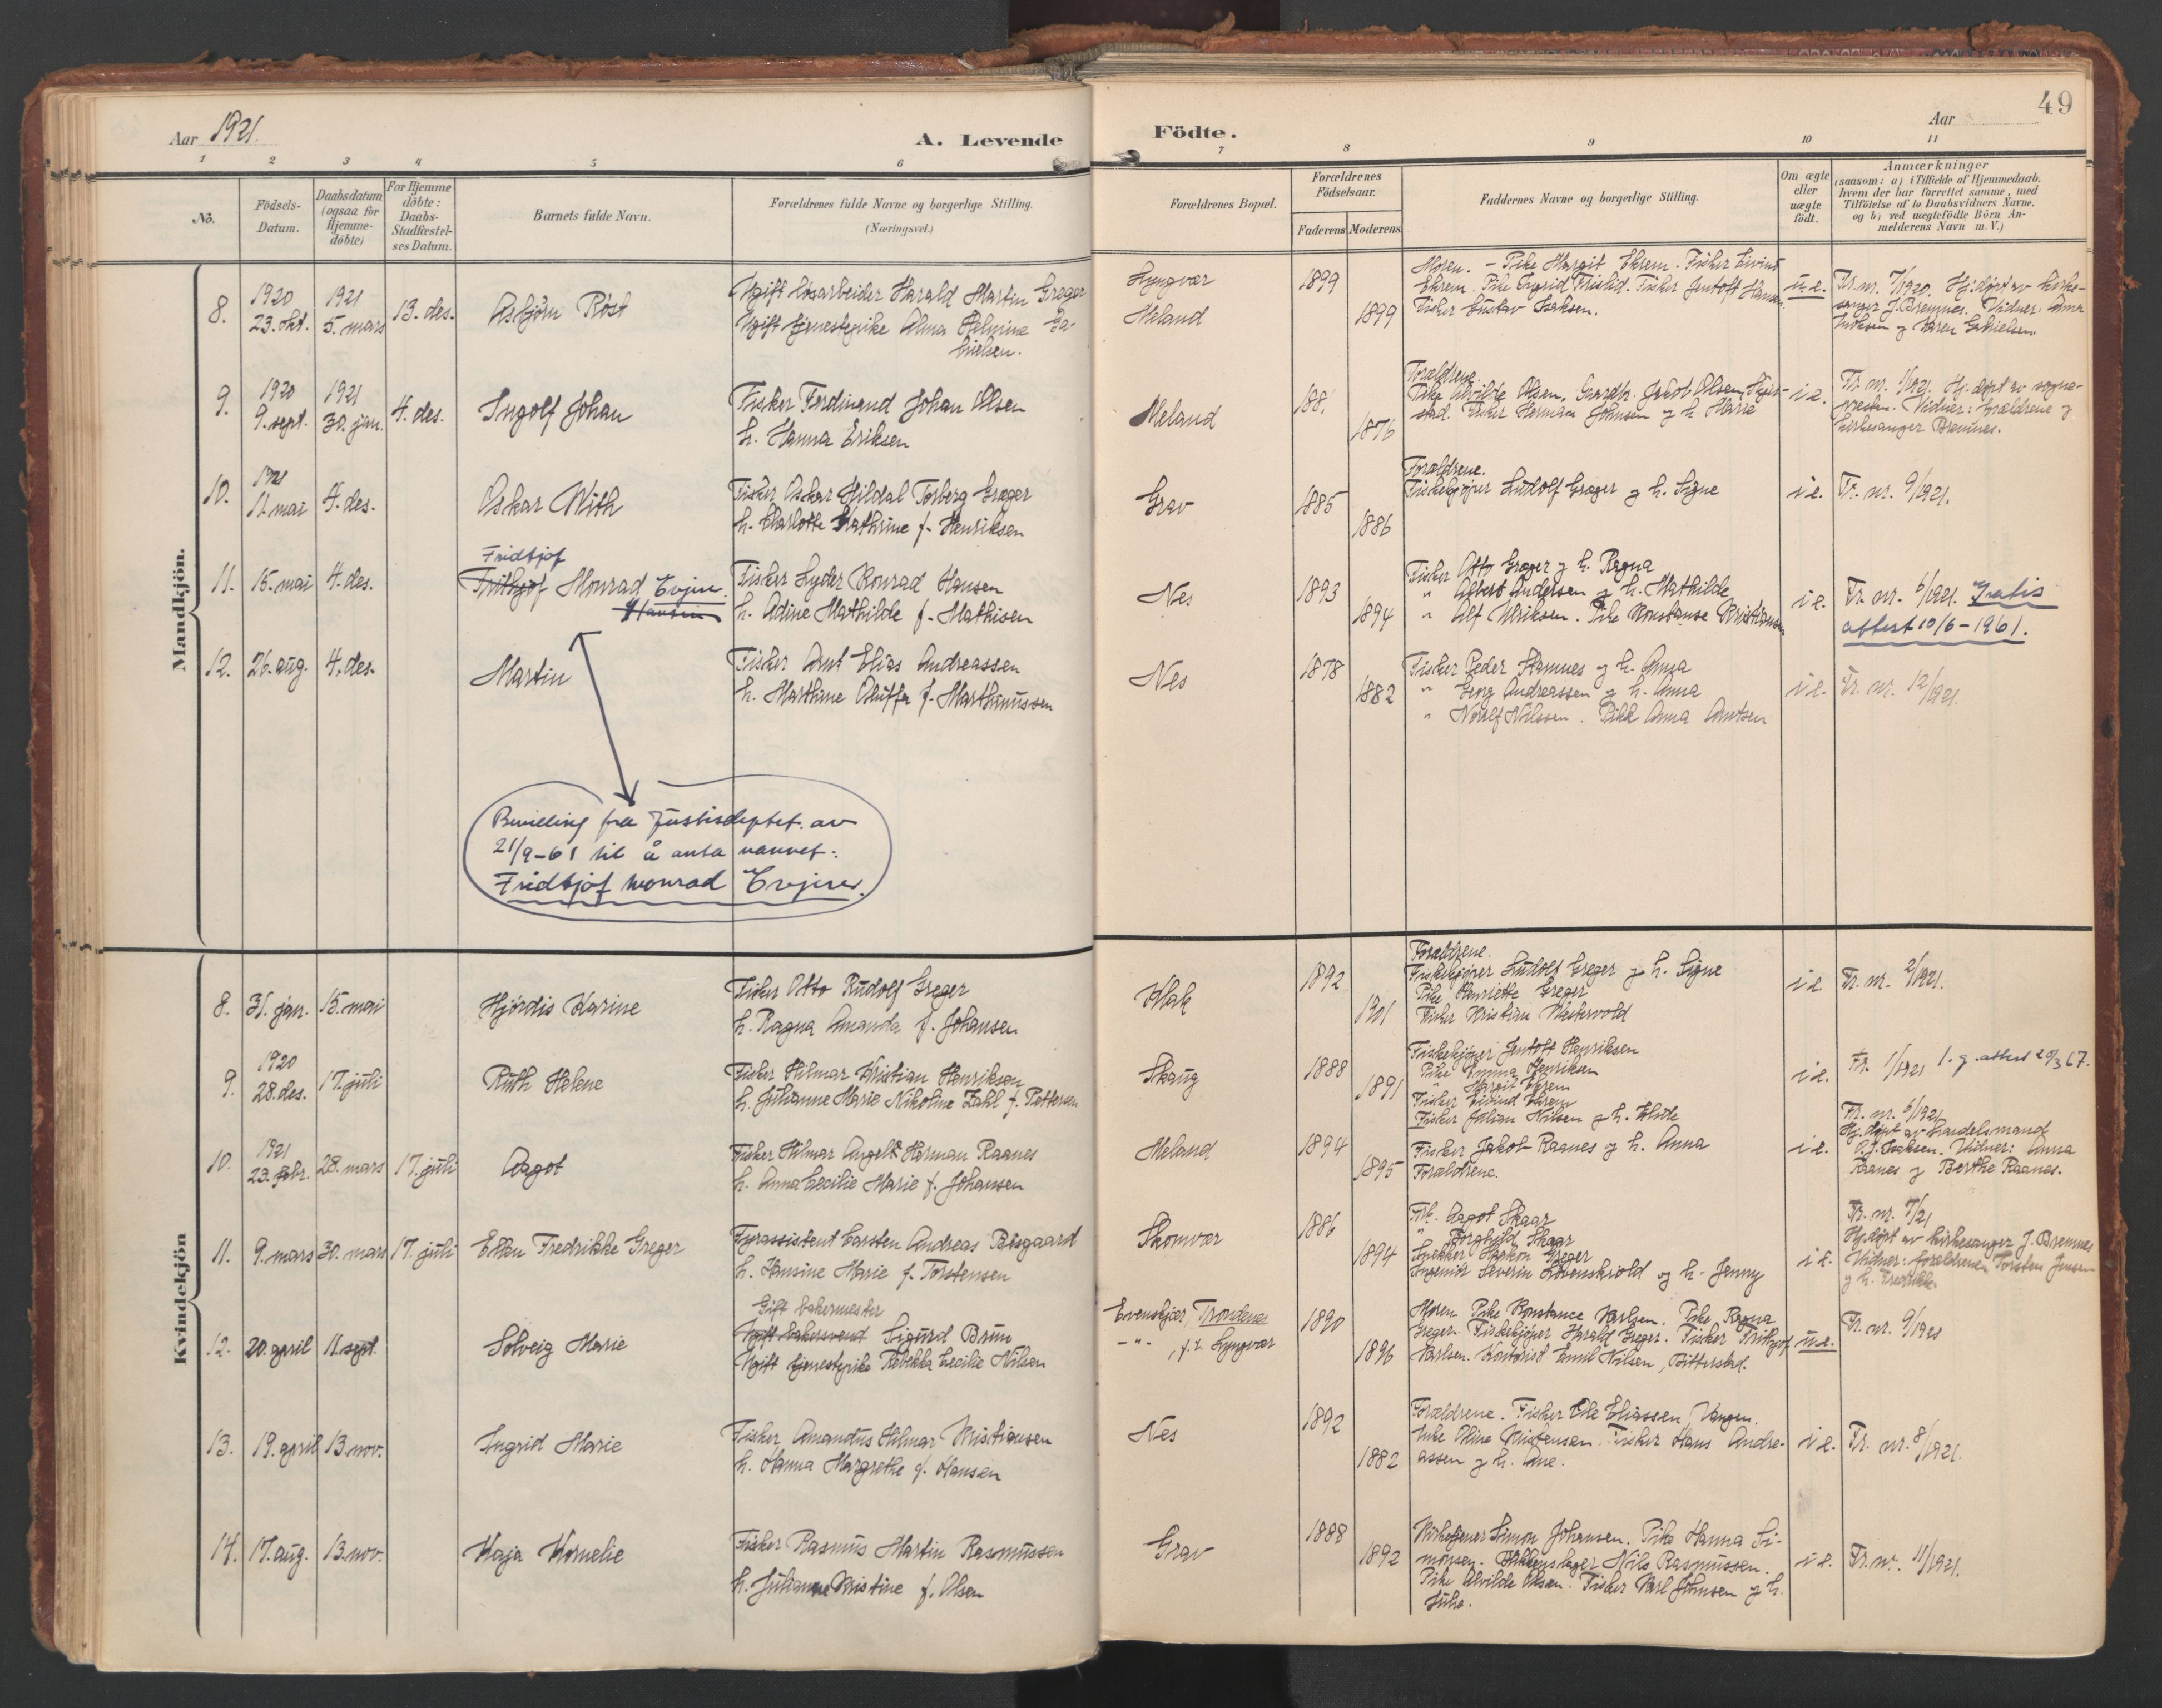 Aar 1921.
A. Levende
Födte.
Aar
49
1 2 3 4 5 6 7 8 9 10 11
No.
Födsels-
Datum.
Daabsdatum
(ogsaa for
Hjemme-
döbte)
For Hjemme
döbte:
Daabs-
Stadfæstel-
ses Datum.
Barnets fulde Navn.
Forældrenes fulde Navne og borgerlige Stilling.
(Næringsvei.)
Forældrenes Bopæl.
Forældrenes
Födselsaar.
Faderens Moderens
Faddernes Navne og borgerlige Stilling.
Om ægte
eller
uægte
födt.
Anmærkninger
(saasom: a) i Tilfælde af Hjemmedaab.
hvem der har forrettet samme, med
Tilföielse af to Daabsvidners Navne.
og b) ved uægtefödte Börn An-
melderens Navn m. V.)
Mandkjön.
8.
1920
23. okt.
1921
5. mars
13. des.
Asbjörn Röst
Ugift løsarbeider Harald Martin Greger
Ugift tjenestepike Alma Helmine Ga-
brielsen.
Lyngvær
Meland
1899
1899
Moren. - Pike Margit Ekrem. Fisker Eivind
Ekrem. Pike Ingrid Fristid. Fisker Jentoft Hansen
Fisker Gustav Isaksen.
u.e.
Fr. nr. 7/1920. Hj.døpt av kirke-
sanger J. Bremnes. Vidner: Anna
og Karen Gabrielsen
9.
1920
9. sept.
1921
30. jan.
4. des.
Ingolf Johan
Fisker Ferdinand Johan Olsen
h. Hanna Eriksen
Meland
188.
1876
Forældrene.
Pike Alvilde Olsen, Gaardbr. Jakob Olsen,
stad. Fisker Herman Johnsen og h. Marie
i e.
Fr. nr. 1/1921. Hj. døpt av sogne-
presten. Vidner: forældrene og
kirkesanger Bremnes.
10.
1921
11. mai
4. des.
Oskar With
Fisker Oskar Hildal Torberg Greger
h. Charlotte Kathrine f. Henriksen
Grav
1885
1886
Forældrene.
Fiskekjøper Ludolf Greger og h. Signe
i e.
Fr. nr. 9/1921.
11.
15. mai
4. des.
Fridtjof
Frithjof Monrad Evjen
Hansen
Fisker Lyder Konrad Hansen
h. Adine Mathilde f. Mathisen
Nes
1893
1894
Fisker Otto Greger og h. Ragna
" Albert Andersen og h. Mathilde
" Alf Ulriksen. Pike Konstanse Kristiansen
i e.
Fr. nr. 6/1921. Gratis
attest 10/6-1961.
12.
26. aug.
4. des.
Martin
Fisker Arnt Elias Andreassen
h. Marthine Oluffa f. Marthinussen
Nes
1878
1882
Fisker Peder Hamnes og h. Anna
" Georg Andreassen og h. Anna
" Norolf Nilssen. Pike Anna Arntsen
i e.
Fr. nr. 12/1921.
Bevilling fra Justisdeptet. av
21/9-61 til å anta navnet:
Fridtjof Monrad Evjen.
Kvindekjön
8.
31. jan.
15. mai
Hjördis Karine
Fisker Otto Rudolf Greger
h. Ragna Amanda f. Johansen
Klak
1892
1901
Forældrene.
Fiskekjøper Ludolf Greger og h. Signe
Pike Henriette Greger
Fisker Kristian Westervold
i e.
Fr. nr. 2/1921.
9.
1920
28. des.
17. juli
Ruth Helene
Fisker Hilmar Kristian Henriksen
h. Julianne Marie Nikoline Zahl f. Pettersen
Skaug
1888
1891
Fiskekjøper Jentoft Henriksen
Pike Emma Henriksen
" Margit Ekrem
Fisker Eivind Ekrem
Fisker Julian Nilsen og h. Elide
i e.
Fr. 1/1921 1. g. attest 20/3 67.
10.
1921
23. febr.
28. mars
17. juli
Aagot
Fisker Hilmar Angelt Herman Raanes
h. Anna Cecilie Marie f. Johansen
Meland
1894
1895
Fisker Jakob Raanes og h. Anna
Forældrene.
i e.
Fr. nr. 6/1921
Hj. døpt av handelsmand
Isaksen. Vidner: Anna
Raanes og Berthe Raanes.
11.
9. mars
30. mars
17. juli
Ellen Fredrikke Greger
Fyrassistent Carsten Andreas Bisgaard
h. Hansine Marie f. Torstensen
Skomvær
1886
1894
Frk. Aagot Skaar
" Borghild Skaar
Snekker Haakon Greger
Severin Løvenskiold og h. Jenny
i e.
Fr. nr. 7/21
Hj.døpt av kirkesanger J. Bremnes
Vidner: forældrene Torsten Jensen
og h. Fredrikke
12.
20. april
11. sept.
Solveig Marie
Gift bakermester
Ugift bakersvend Sigurd Brun
Ugift tjenestepike Rebekka Cecilie Nilsen
Evenskjær, Trondenes
-"- , f.t. Lyngvær
1890
1896
Moren. Pike Konstance Karlsen. Pike Ragna
Greger. Fiskekjøper Harald Greger. Fisker Frithjof
Karlsen. Kontorist Emil Nilsen, Bitterstad.
u.e.
Fr. nr. 9/1921
13.
19. april
13. nov.
Ingrid Marie
Fisker Amandus Hilmar Kristiansen
h. Hanna Margrethe f. Hansen
Nes
1892
1882
Forældrene. Fisker Ole Eliassen, Vangen.
Enke Oline Kristensen. Fisker Hans Andre-
assen og h. Ane.
i e.
Fr. nr. 8/1921.
14.
17. aug.
13. nov.
Kaja Kornelie
Fisker Rasmus Martin Rasmussen
h. Julianne Kristine f. Olsen
Grav
1888
1892
Kirketjener Simon Johansen. Pike Hanna Si-
monsen. Blikkenslager Nils Rasmussen.
Pike Alvilde Olsen. Fisker Karl Johnsen og h.
i e.
Fr. nr. 11/1921.